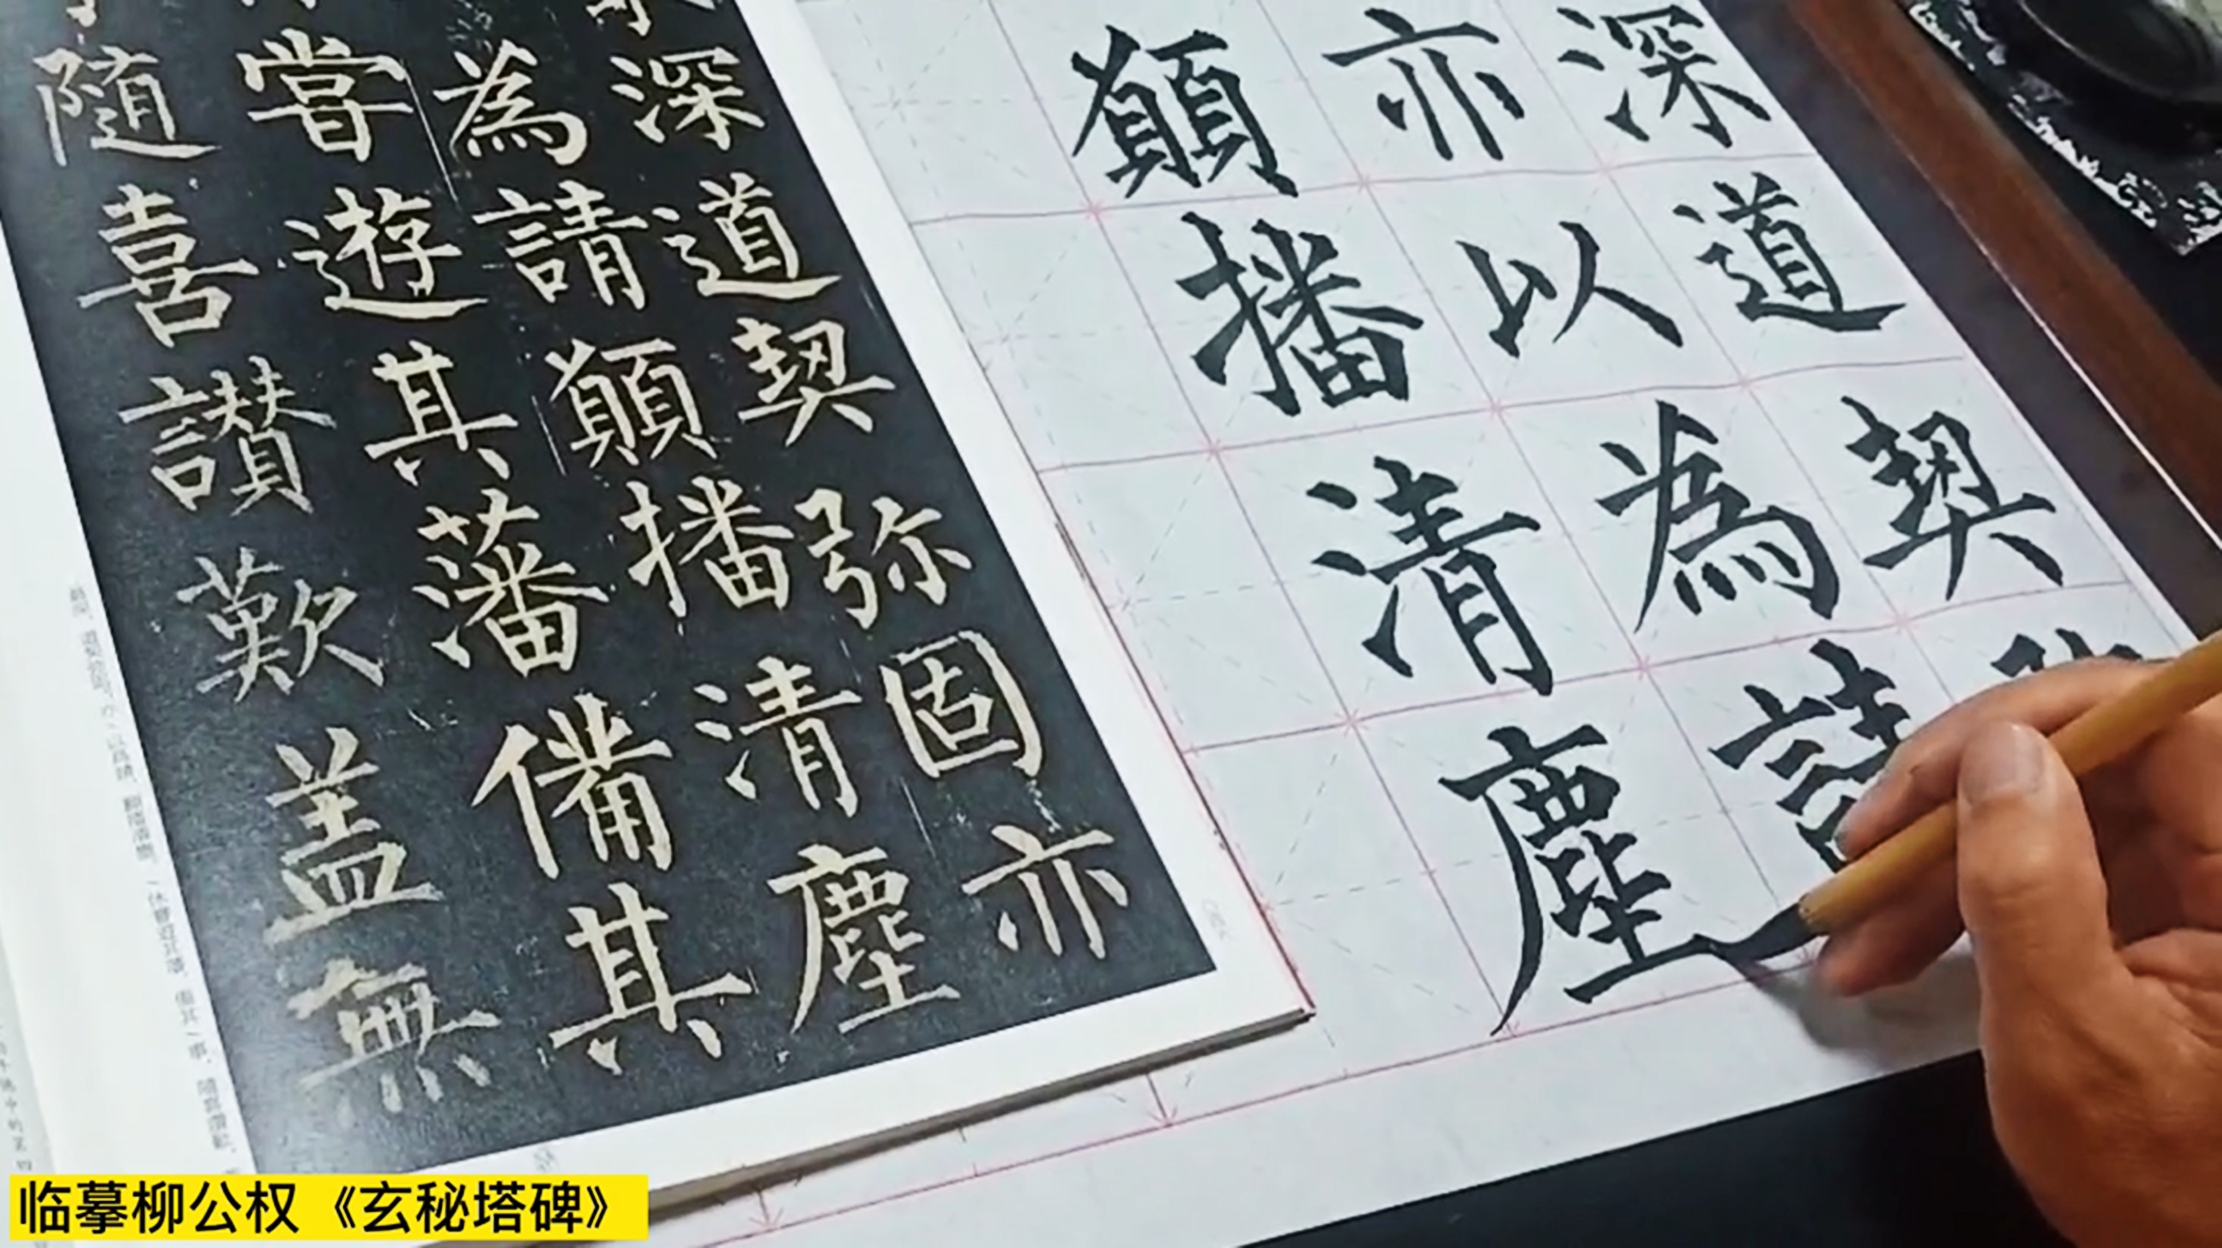 深道契弥固亦
為請願播清塵
嘗遊其藩備其
隨喜讚歎盖無
深道契
亦以為請
願播清塵
临摹柳公权《玄秘塔碑》